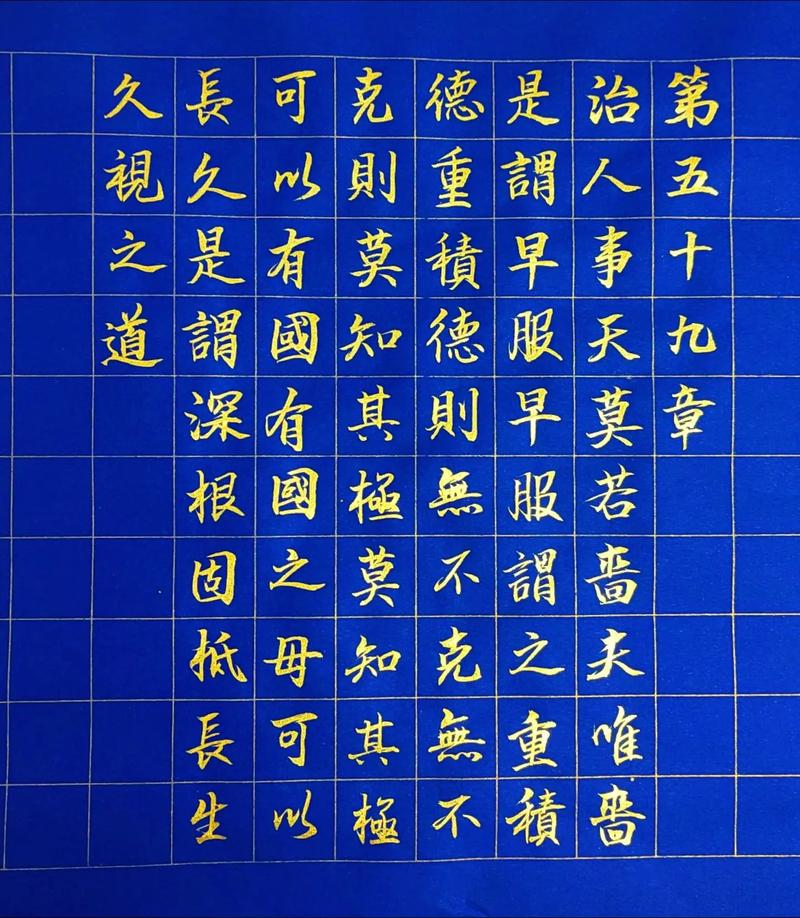 第五十九章
治人事天莫若嗇夫唯嗇
是謂早服早服謂之重積
德重積德則無不克無不
克則莫知其極莫知其極
可以有國有國之母可以
長久是謂深根固柢長生
久視之道